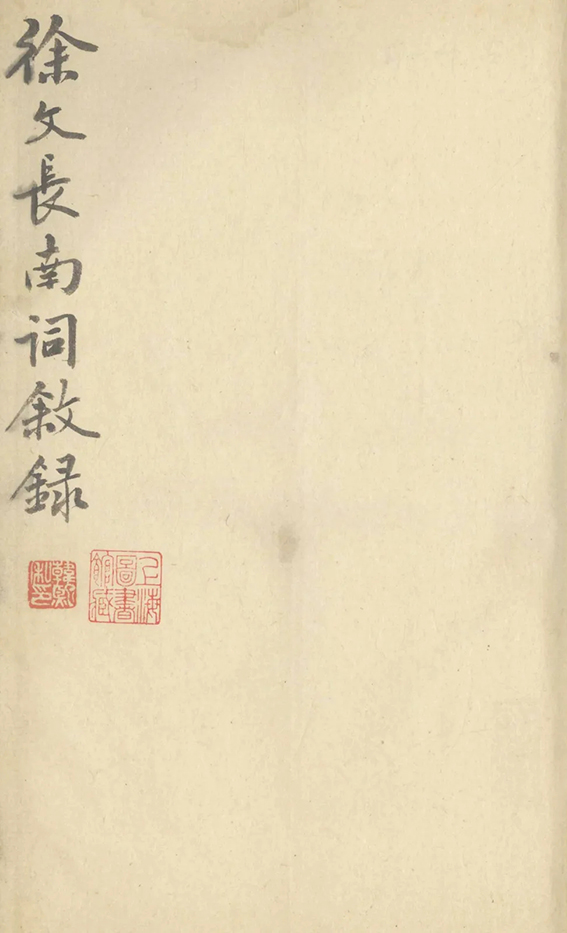 徐文長南詞敘録
上海圖書館藏